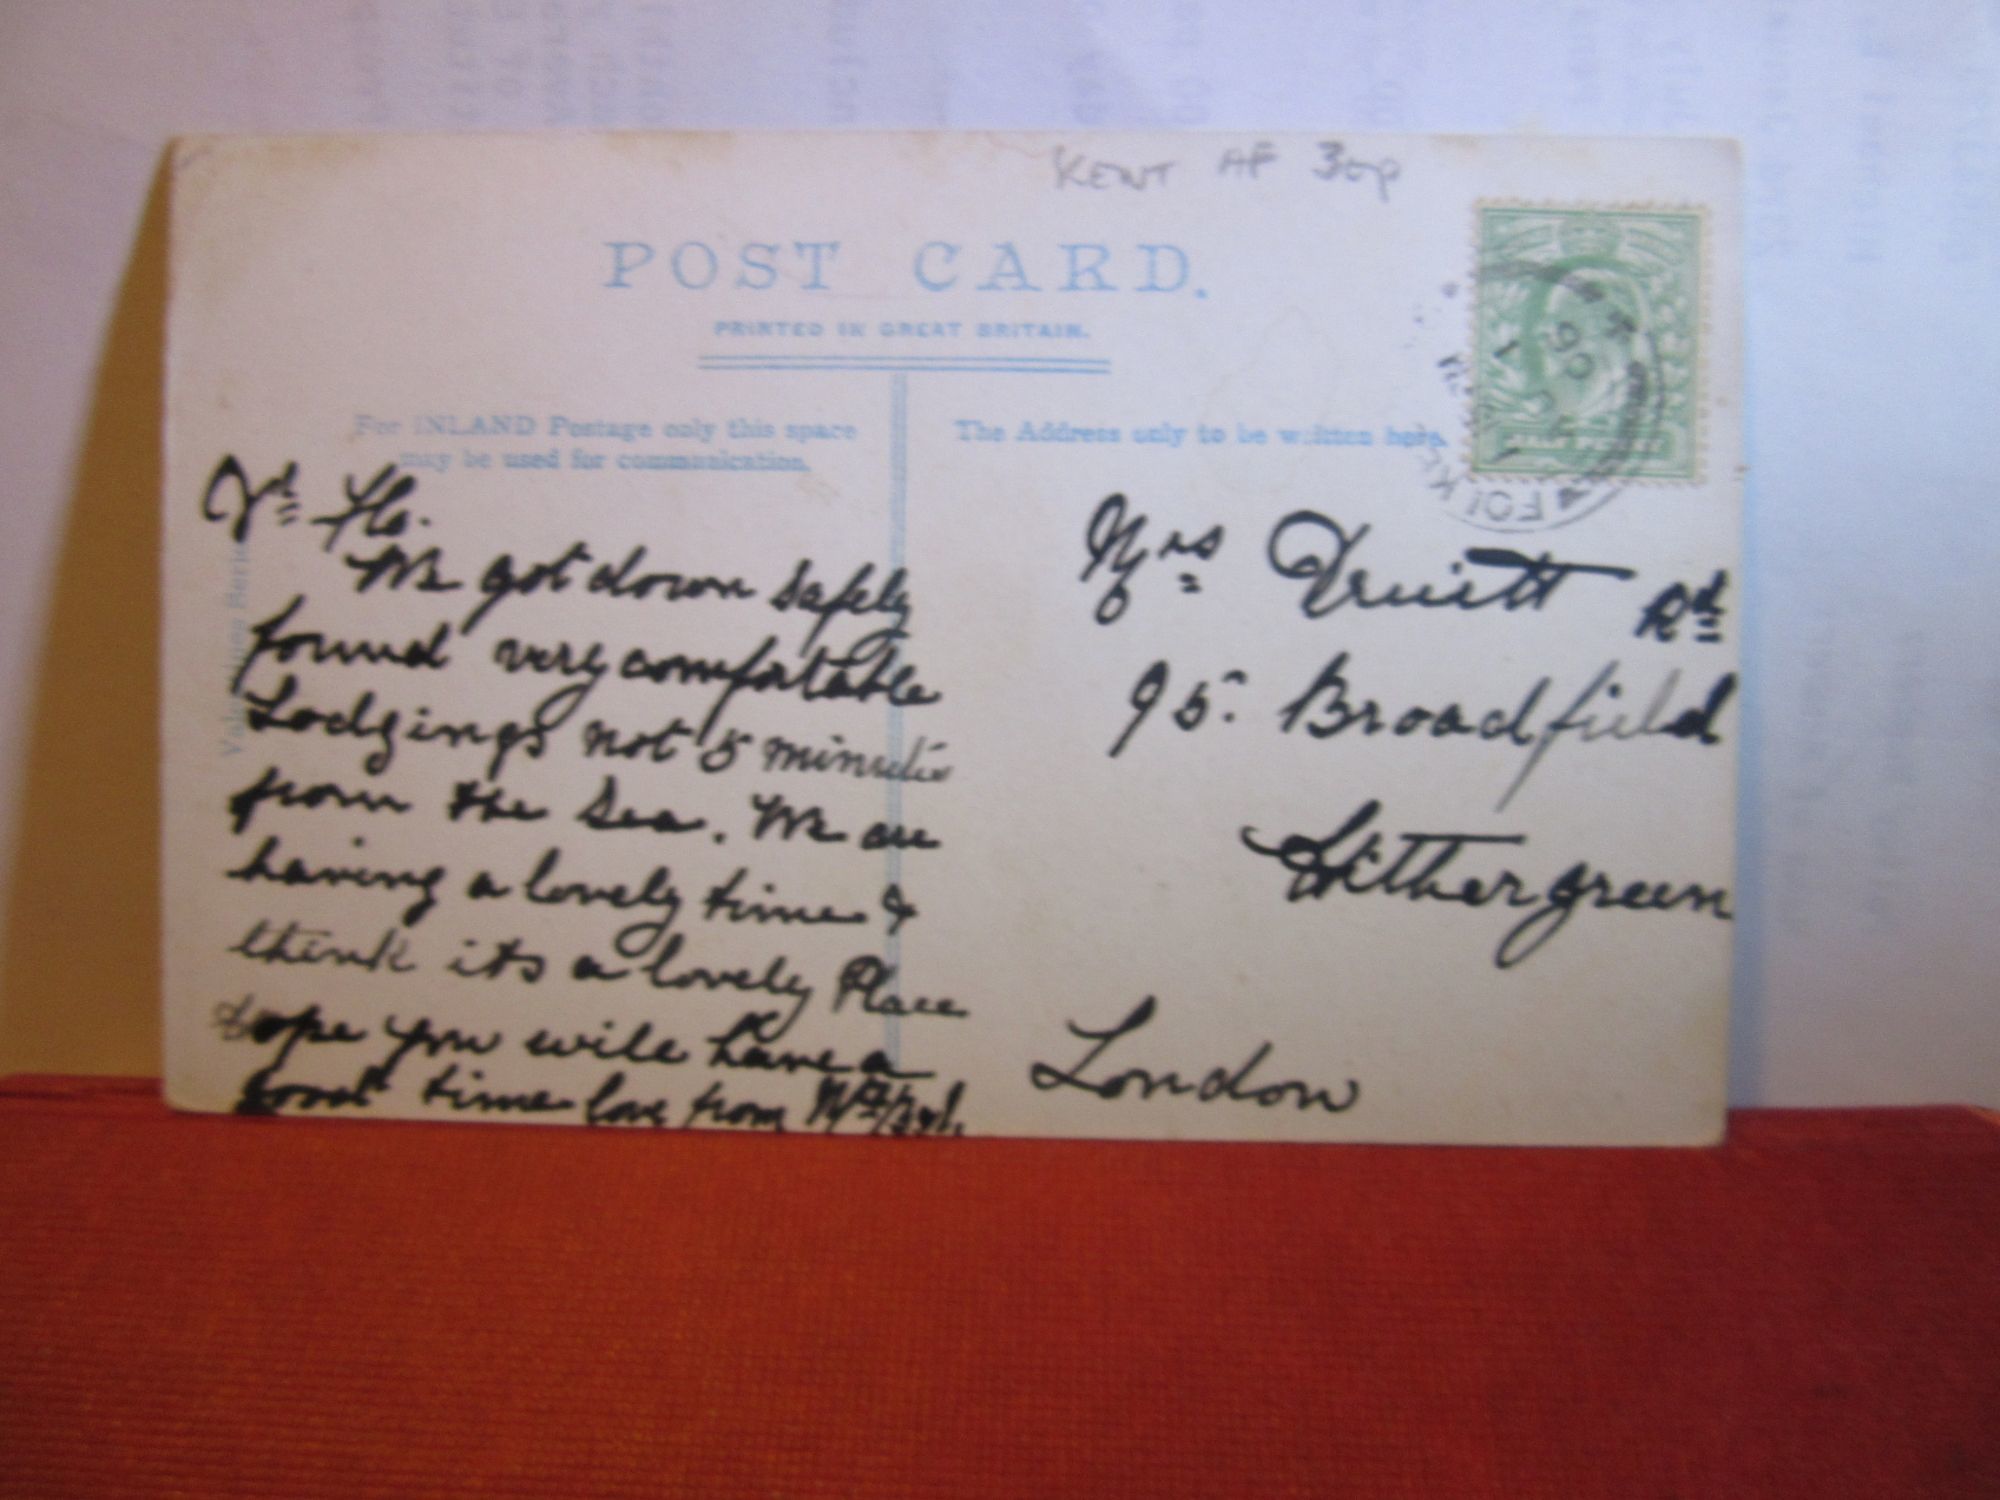 KENT AF 30p
POST CARD.
PRINTED IN GREAT BRITAIN.
For INLAND Postage only this space
may be used for communication.
The Address only to be written here.
Dr Flo.
We got down safely
found very comfortable
Lodgings not 5 minutes
from the Sea. We are
having a lovely time &
think its a lovely Place
hope you will have a
good time love from
Mrs Truett
95. Broadfield Rd
Hithergreen
London
FOLKE